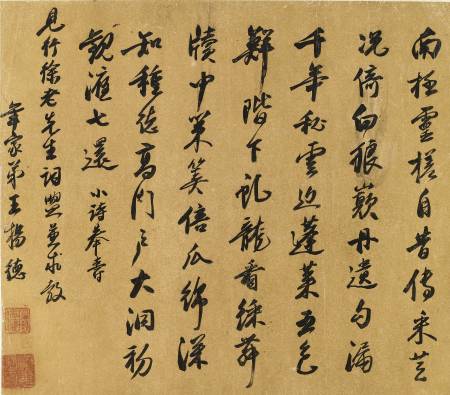 南極靈椿自昔傳采芝
況倚白狼巔丹遺勾漏
千年秘雲近蓬萊五色
鮮階下虬龍看綵舞
牘中算倍瓜綿深
知種德高門戶大洞初
七還 小詩奉壽
見行徐老先生詞盟並求教
年家弟王揚德